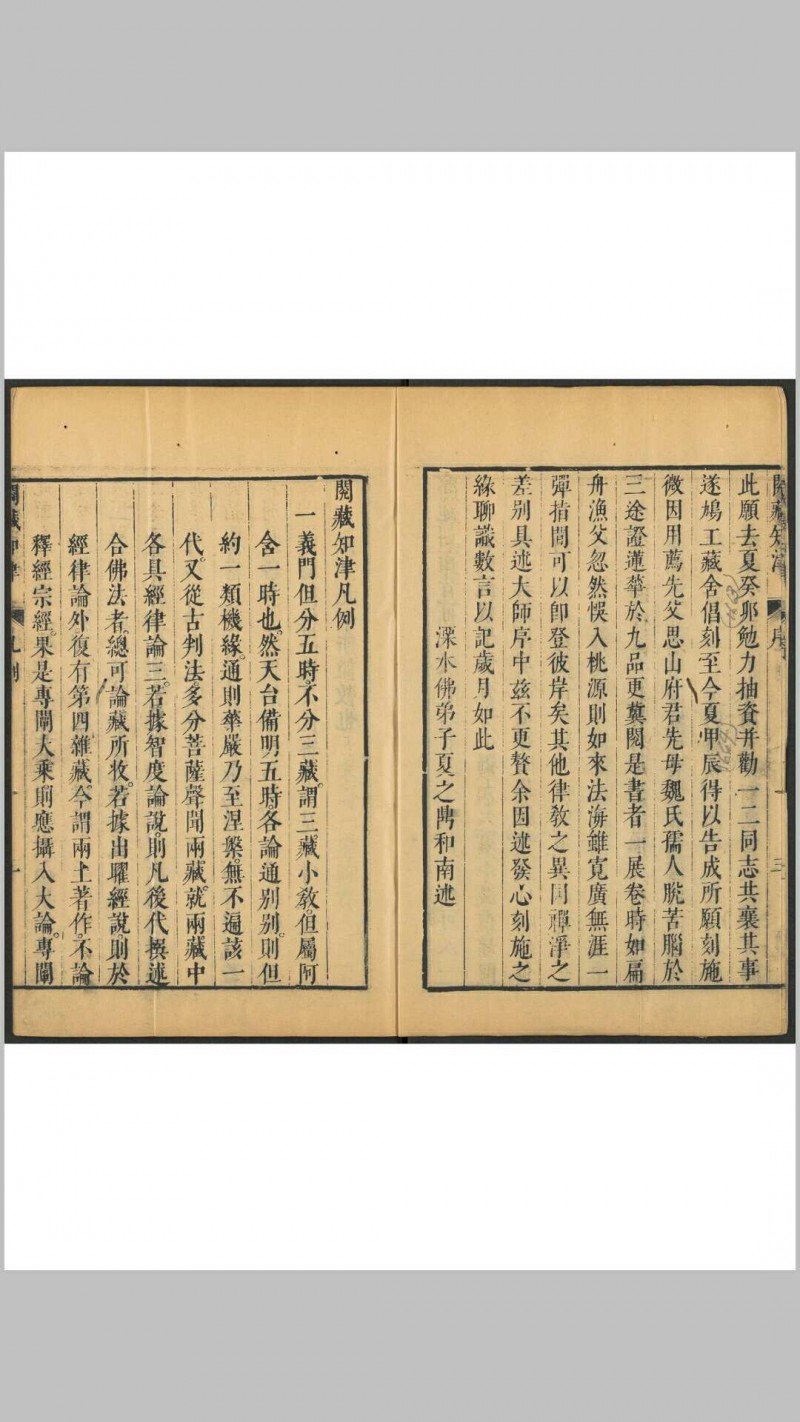 閱藏知津 序 三
此願去夏癸卯勉力抽資并勸一二同志共襄其事
遂鳩工藏舍倡刻至今夏甲辰得以告成所願刻施
微因用薦先父思山府君先母魏氏孺人脫苦腦於
三途證蓮華於九品更冀閱是書者一展卷時如扁
舟漁父忽然悞入桃源則如來法海雖寬廣無涯一
彈指間可以即登彼岸矣其他律教之異同禪淨之
差别具述大師序中茲不更贅余因述發心刻施之
緣聊識數言以記歲月如此
溧水佛弟子夏之鼎和南述
閱藏知津凡例
一義門但分五時。不分三藏。謂三藏小教。但屬阿
舍一時也。然天台備明五時。各論通别。别則但
約一類機緣。通則華嚴乃至涅槃。無不遍該一
代。又從古判法。多分菩薩聲聞兩藏。就兩藏中
各具經律論三。若據智度論說。則凡後代撰述
合佛法者。總可論藏所收。若據出曜經說。則於
經律論外。復有第四雜藏。今謂兩土著作。不論
釋經宗經。果是專闡大乘。則應攝入大論。專闡
閱藏知津 凡例 一